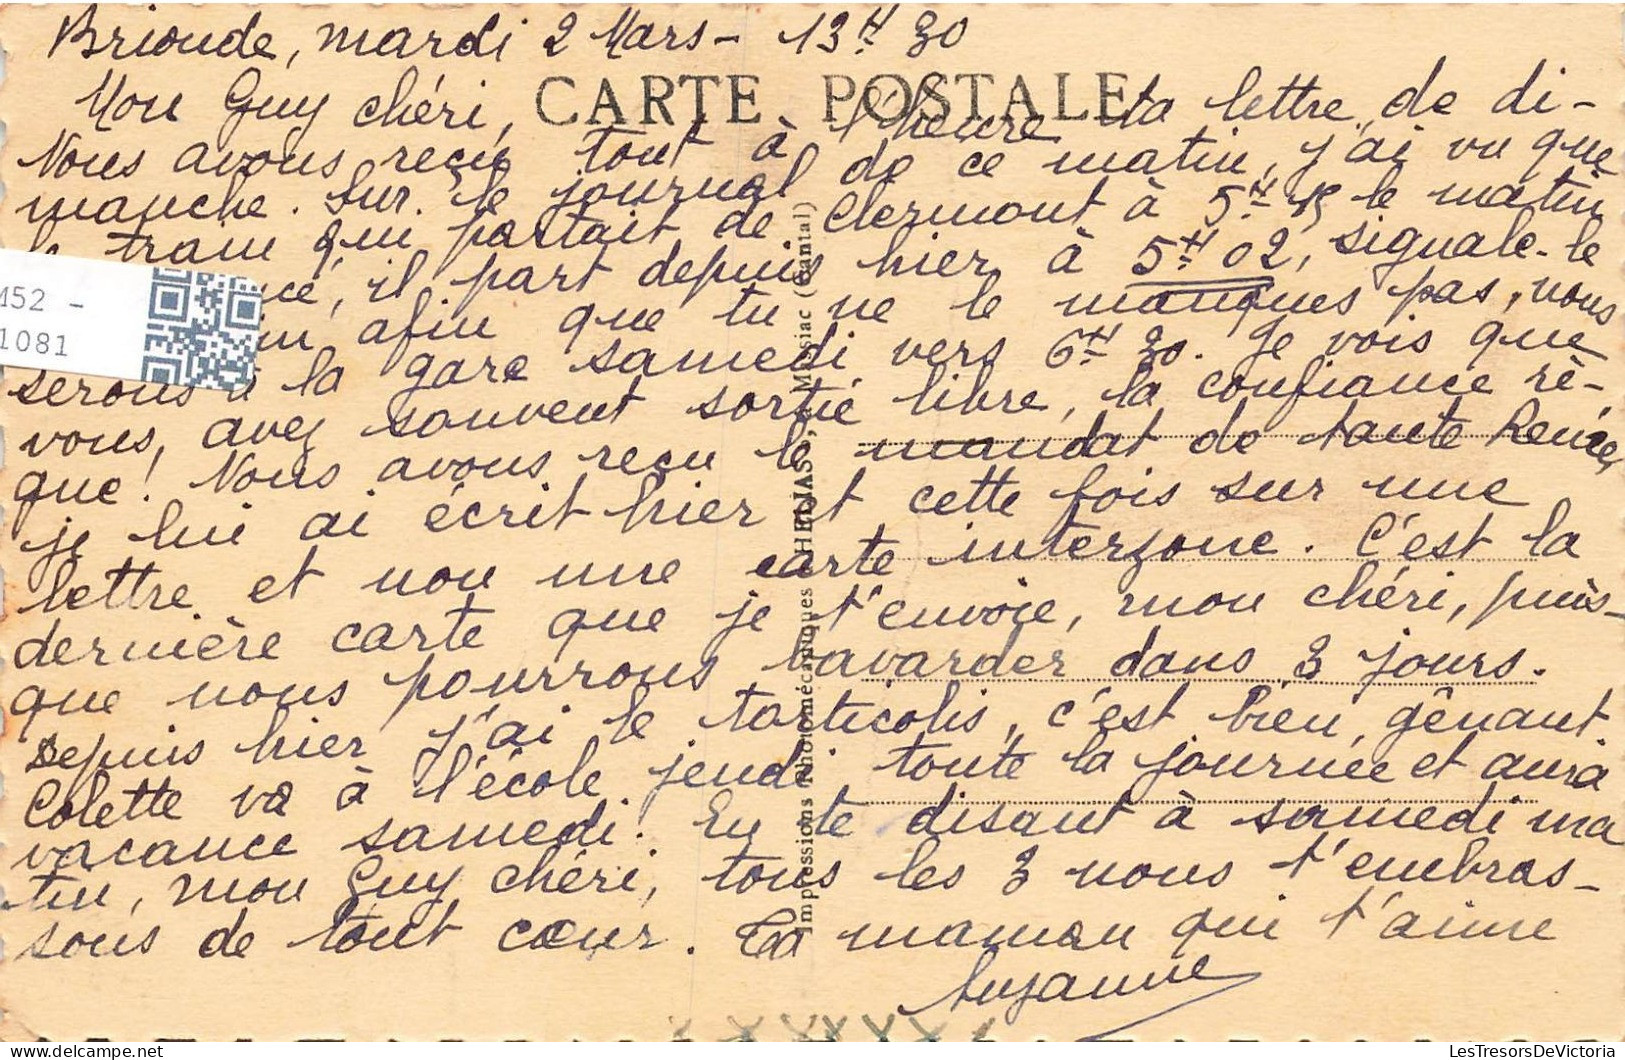 Brioude, mardi 2 Mars - 13H 30
CARTE POSTALE
Mon Guy chéri,
Nous avons reçu tout à l'heure ta lettre de di-
manche. Sur le journal de ce matin, j'ai vu que
le train qui partait de Clermont à 5H 15 le matin
il part depuis hier à 5H 02, signale-le
afin que tu ne le manques pas, nous
serons à la gare samedi vers 6H 30. Je vois que
vous, avez souvent sortie libre, la confiance rè-
gne! Nous avons reçu le mandat de tante Renée,
je lui ai écrit hier et cette fois sur une
lettre et non une carte interzone. C'est la
dernière carte que je t'envoie, mon chéri, puis-
que nous pourrons bavarder dans 3 jours.
Depuis hier j'ai le torticolis, c'est bien gênant.
Colette va à l'école jeudi toute la journée et aura
vacance samedi. En te disant à samedi ma
tin, mon Guy chéri, tous les 3 nous t'embras-
sons de tout cœur. Ta maman qui t'aime
Suzanne
Impressions Photomécaniques Massiac (Cantal)
M52 -
1081
LesTresorsDeVictoria